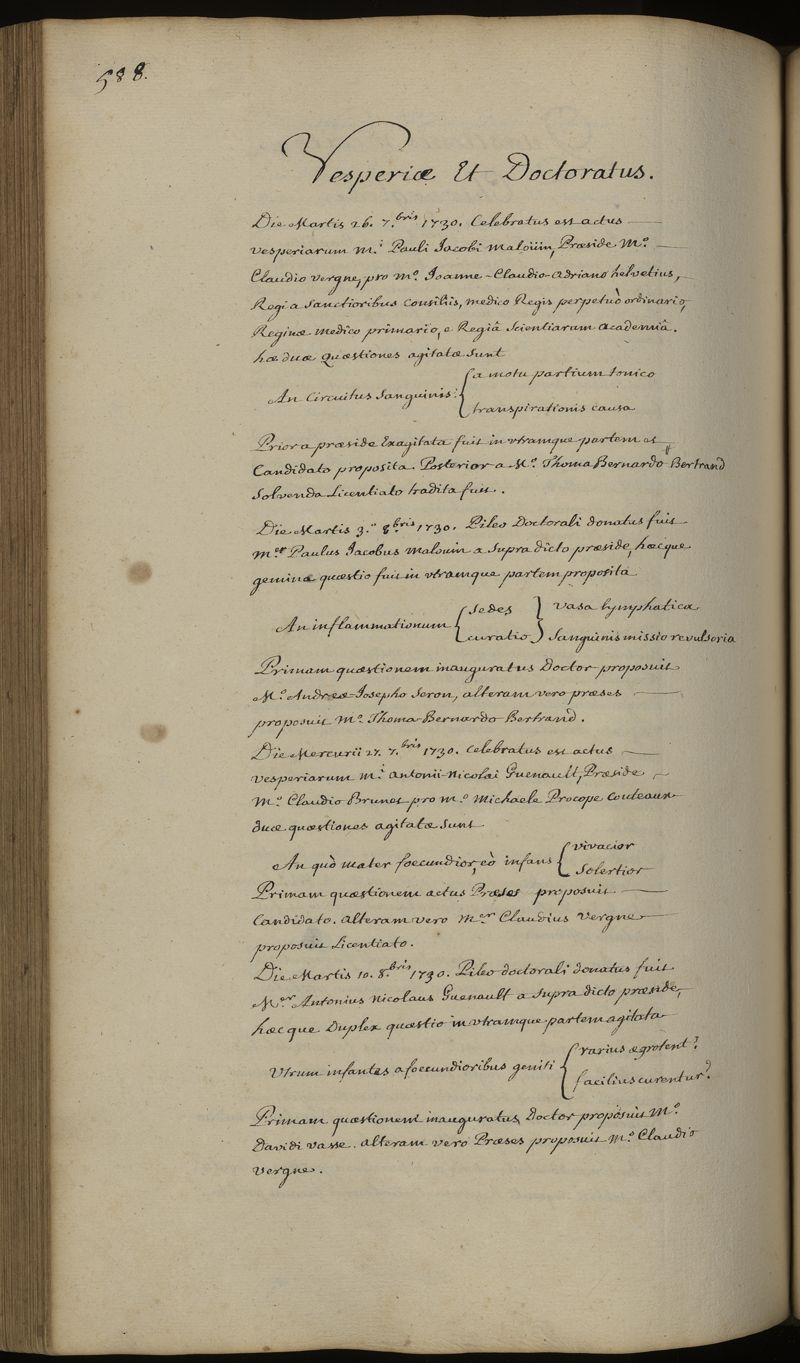 588.
Vesperiæ Et Doctoratus.
Die Martis 26. 7.bris 1730. Celebratus est actus
vesperiarum M.i Pauli Jacobi Maloüin, Præside M.o
Claudio Vergne, pro M.o Joanne-Claudio-Adriano helvetius,
Regi a Sanctioribus Consiliis, medico Regis perpetuò ordinario,
Reginæ medico primario, e Regiâ Scientiarum academiâ.
hæ duæ Quæstiones agitatæ Sunt
An Circuitus Sanguinis { a motu partium tonico
transpirationis causa
Prior a præside Exagitata fuit in vtramque partem et
Candidato proposita. Posterior a M.o Thoma Bernardo Bertrand
Solvenda Licentiato tradita fuit.
Die Martis 3.a 8.bris 1730. Pileo Doctorali donatus fuit
M.er Paulus Jacobus malouin a Supra dicto præside, hæcque
gemina quæstio fuit in vtramque partem proposita
An inflammationum { Sedes } vasa lymphatica
curatio } Sanguinis missio revulsoria
Primam quæstionem inauguratus Doctor proposuit
M.o Andreæ-Josepho Seron, alteram vero præses
proposuit M.o Thoma Bernardo Bertrand.
Die Mercurii 27. 7.bris 1730. Celebratus est actus
vesperiarum M.i antonii-Nicolai Guenault, Præside
M.o Claudio Brunet pro M.o Michaele Procope Couteaux
duæ quæstiones agitatæ Sunt
An quò mater foecundior, eò infans { vivacior
Solertior
Primam quæstionem actus Præses proposuit
Candidato. alteram vero M.er Claudius Vergne
proposuit Licentiato.
Die Martis 10. 8.bris 1730. Pileo doctorali donatus fuit
M.er Antonius Nicolaus Guenault a Supra dicto præside,
hæc que Duplex quæstio in vtramque partem agitata
Vtrum infantes a foecundioribus geniti { rarius ægrotent?
facilius curentur?
Primam quæstionem inauguratus Doctor proposuit M.o
Davidi Vasse. alteram vero Præses proposuit M.o Claudio
Vergne.